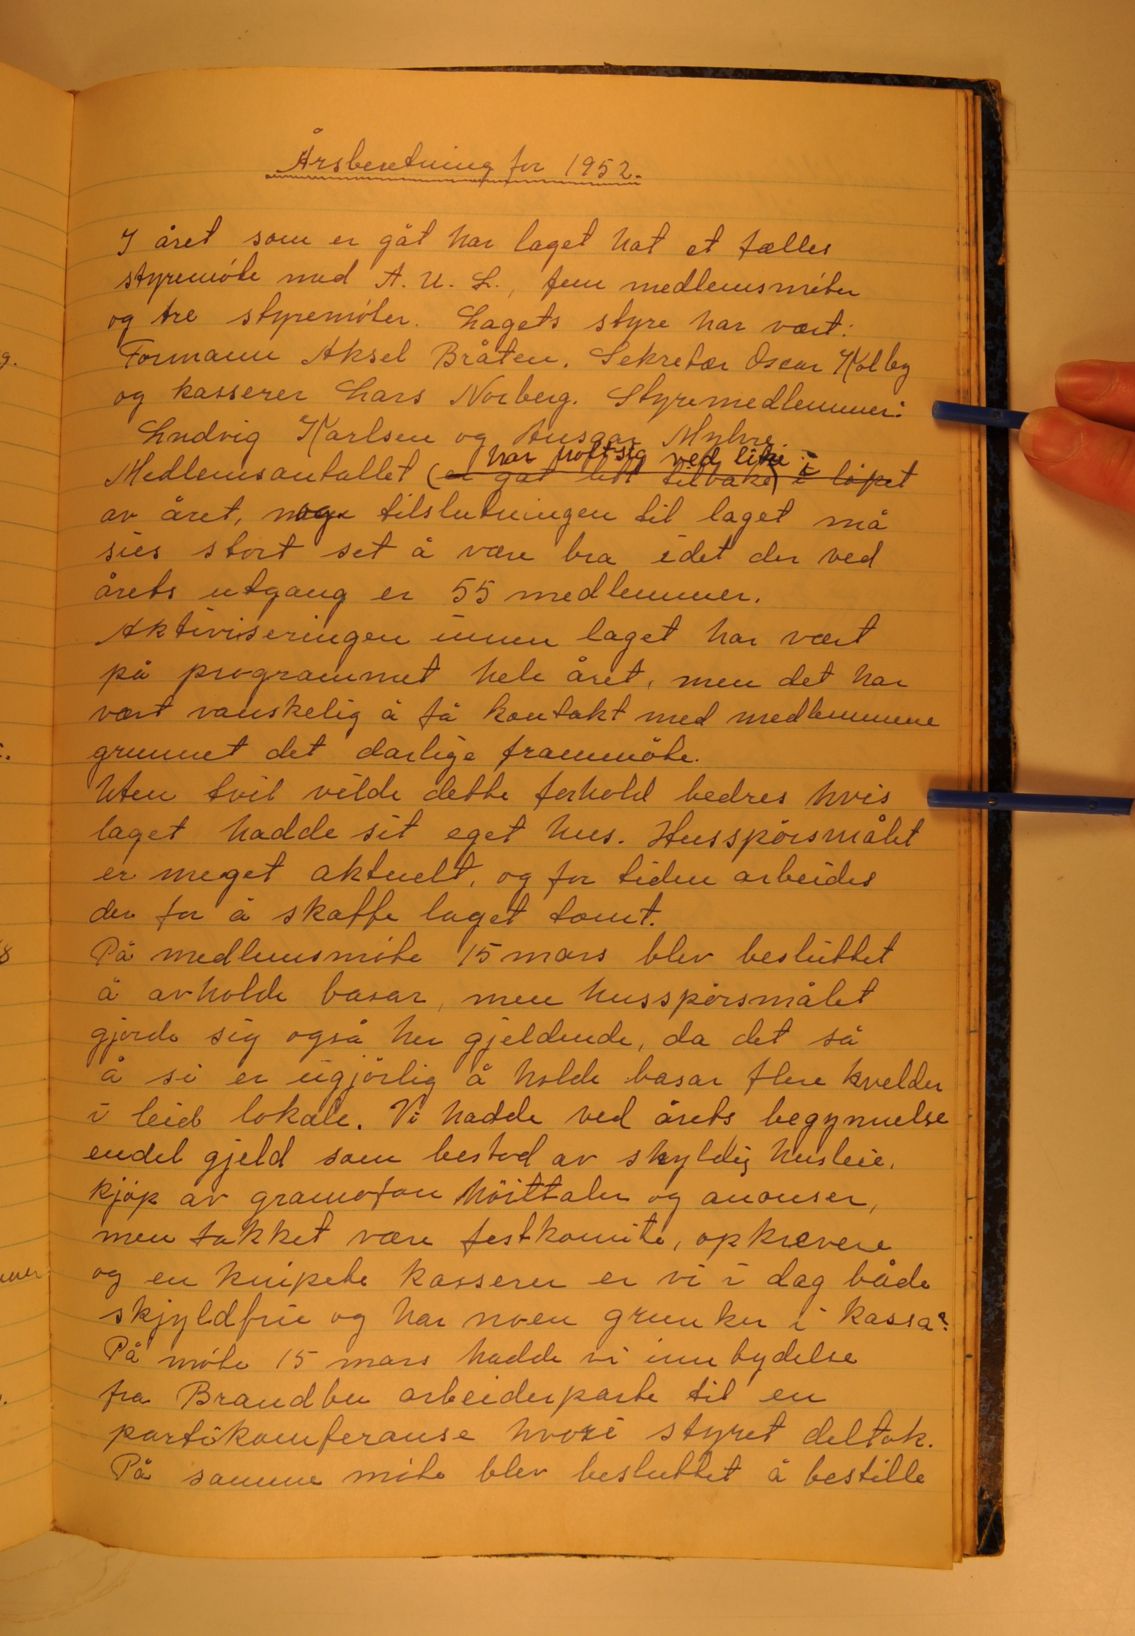 Årsberetning for 1952.
I året som er gåt har laget hat et fælles
styremöte med A. U. L., fem medlemsmöter
og tre styremöter. Lagets styre har vært:
Formann Aksel Bråten. Sekretær Oscar Kolby
og kasserer Lars Norberg. Styremedlemmer:
Ludvig Karlsen og Ansgar Myhre.
har holt sig ved like i
Medlemsantallet (er gåt litt tilbake) i löpet
av året, og tilslutningen til laget må
sies stort set å være bra idet der ved
årets utgang er 55 medlemmer.
Aktiviseringen innen laget har vært
på programmet hele året, men det har
vært vanskelig å få kontakt med medlemmene
grunnet det darlige frammöte.
Uten tvil vilde dette forhold bedres hvis
laget hadde sit eget hus. Husspörsmålet
er meget aktuelt, og for tiden arbeides
der for å skaffe laget tomt.
På medlemsmöte 15 mars blev besluttet
å avholde basar, men husspörsmålet
gjorde sig også her gjeldende, da det så
å si er ugjörlig å holde basar flere kvelder
i leid lokale. Vi hadde ved årets begynnelse
endel gjeld som bestod av skyldig husleie,
kjöp av gramofon höittaler og anonser,
men takket være festkomite, opkrevere
og en knipete kasserer er vi i dag både
skjyldfrie og har noen grunker i kassa.
På möte 15 mars hadde vi innbydelse
fra Brandbu arbeiderparte til en
partikomferanse hvori styret deltok.
På samme möte blev besluttet å bestille